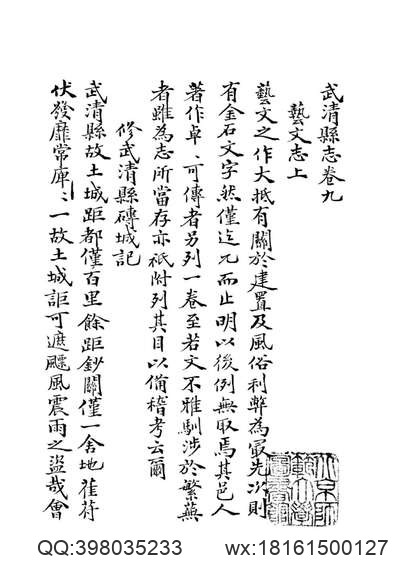 武清縣志卷九
藝文志上
藝文之作大抵有關於建置及風俗利弊為㝡先次則
有金石文字然僅迄元而止明以後例無取焉其邑人
著作卓〻可傳者另列一卷至若文不雅馴涉於繁蕪
者雖為志所當存亦祇附列其目以備稽考云爾
修武清縣磚城記
武清縣故土城距都僅百里餘距鈔關僅一舍地萑苻
伏發靡常庫〻一故土城詎可遮飈風震雨之盜哉會
北京師
範大學
圖書館
QQ:398035233 wx:18161500127